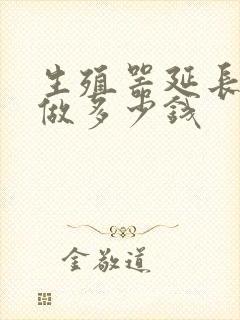 生殖器延长
做多少钱
金敬道